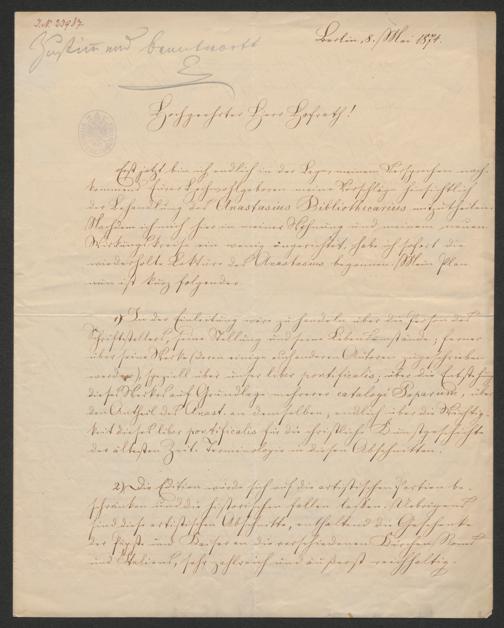 J. N. 23987
Zustimmend beantwortet
E
Berlin, 8. Mai 1874.
Hochgeehrter Herr Hofrath!
Erst jetzt bin ich endlich in der Lage, meinem Versprechen nach-
kommend Euer Hochwohlgeboren meine Vorschläge hinsichtlich
der Behandlung des Anastasius Bibliothecarius mitzutheilen.
Nachdem ich mich hier in meiner Wohnung und meinem neuen
Wirkungskreise ein wenig eingerichtet, habe ich sofort die
wiederholte Lektüre des Anastasius begonnen. Mein Plan
nun ist kurz folgender.
1) In der Einleitung wäre zu handeln über die Person des
Schriftstellers, seine Stellung und seine Lebensumstände; ferner
über seine Werke (deren einige auch anderen Autoren zugeschrieben
werden), speziell über unser liber pontificalis, über die Entstehung
dieses Werkes auf Grundlage mehrerer catalogi Paparum, über
den Antheil des Anast. an demselben, endlich über die Wichtig-
keit dieses liber pontificalis für die christliche Kunstgeschichte
der ältesten Zeit. Terminologie in diesen Abschnitten.
2) Die Edition würde sich auf die artistischen Partien be-
schränken und die historischen fallen lassen. Uebrigens
sind diese artistischen Abschnitte, enthaltend die Geschenke
der Päpste und Kaiser an die verschiedenen Kirchen Roms
und Italiens, sehr zahlreich und äußerst reichhaltig.